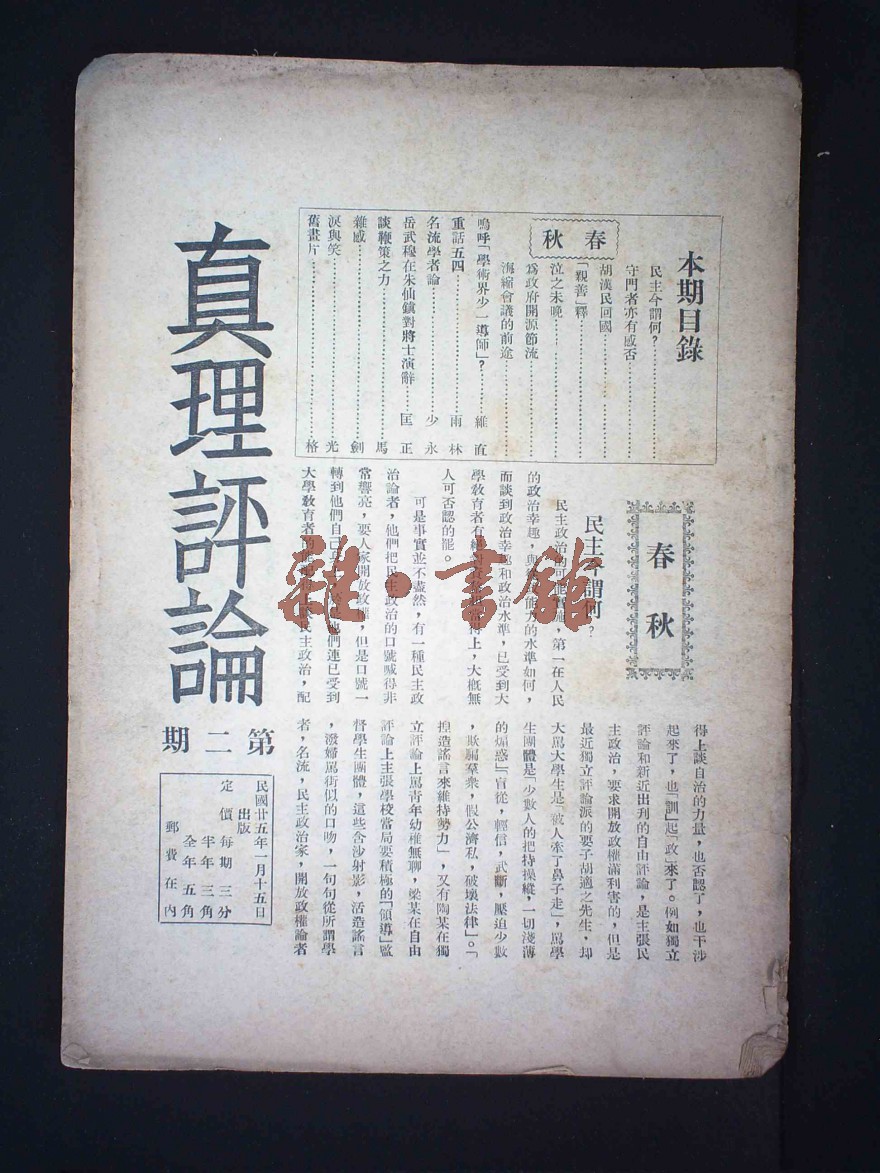 本期目錄
春秋
民主今謂何?
守門者亦有感否
胡漢民回國
「親善」釋
泣之未晚
為政府開源節流
海縮會議的前途
嗚呼「學術界少一導師」?……維直
重話五四……雨林
名流學者論……少永
岳武穆在朱仙鎮對將士演辭……匡正
談鞭策之力……馬
雜感……劍
淚與笑……光
舊畫片……格
真理評論
第二期
民國廿五年一月十五日
出版
定價每期三分
半年三角
全年五角
郵費在內
春秋
民主今謂何?
民主政治的可能實施,第一在人民
的政治幸趣,與
能力的水準如何,
而談到政治幸趣和政治水準,已受到大
學教育者有
上,大概無
人可否認的罷。
可是事實並不盡然,有一種民主政
治論者,他們把民主政治的口號喊得非
常響亮,要人家開放政權,但是口號一
轉到他們自己
他們連已受到
大學教育者的
民主政治,配
得上談自治的力量,也否認了,也干涉
起來了,也「訓」起「政」來了。例如獨立
評論和新近出刊的自由評論,是主張民
主政治,要求開放政權滿利害的,但是
最近獨立評論派的要子胡適之先生,却
大罵大學生是「被人牽了鼻子走」,罵學
生團體是「少數人的把持操縱,一切淺薄
的煽惑」「盲從,輕信,武斷,壓迫少數
,欺騙羣衆,假公濟私,破壞法律」。「
捏造謠言來維持勢力」,又有陶某在獨
立評論上罵青年幼稚無聊,梁某在自由
評論上主張學校當局要積極的「領導」監
督學生團體,這些含沙射影,活造謠言
,潑婦罵街似的口吻,一句句從所謂學
者,名流,民主政治家,開放政權論者
雜·書館